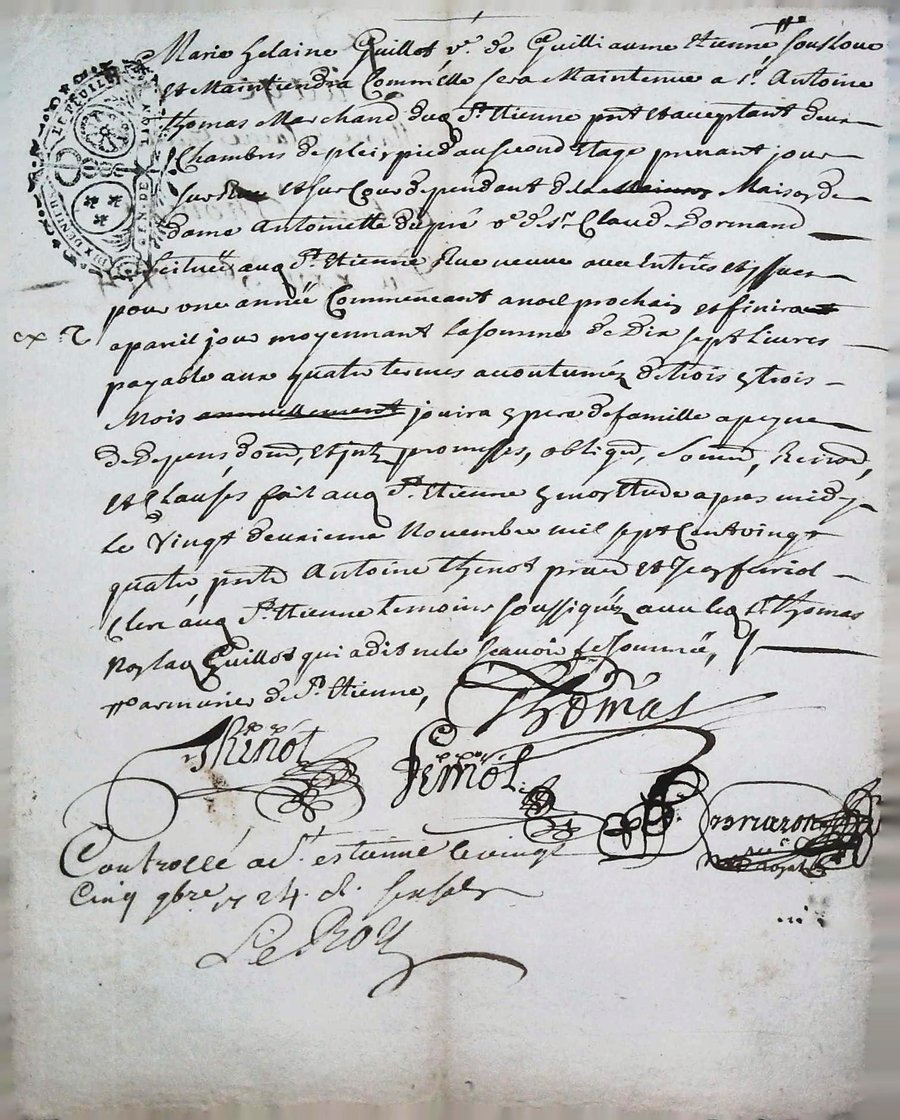 Marie helaine Guillot v.e de Guilliaume Etienne # sousloue
et Maintiendra Comme elle sera Maintenue a sr. Antoine
thomas Marchand dud St. Etienne pnt et acceptant deux
Chambres de pleipied au second Etage prenant jour
sur Rue et sur Cour dependant de la Maison de
dame Antoinette dupré ve de sr. Claude Dormand
scituée aud St. Etienne Rue neuve avec Entrées et jssues
pour une année Commencant a noel prochain et finira
a pareil jour moyennant la somme de Dix sept Livres
payable aux quatre termes accoutuméz de trois en trois
Mois jouira en pere de famille a peyne
de Depens dom, et jnt, promesses, obligon, soumon, Renon,
et Clauses fait aud St. Etienne apres midy
le Vingt deuxieme Novembre mil sept Cent vingt
quatre, pnts Antoine thenot et ferriol
Clerc aud St. Etienne temoins soussignéz avec led sr. thomas
Non lad Guillot qui a dit ne le scavoir de ce Sommée,
# armurier de St. Etienne,
Thomas
Thenot
Controllé a St. estienne le vingt
Cinq 9bre 1724. d. six sols
Le Roy